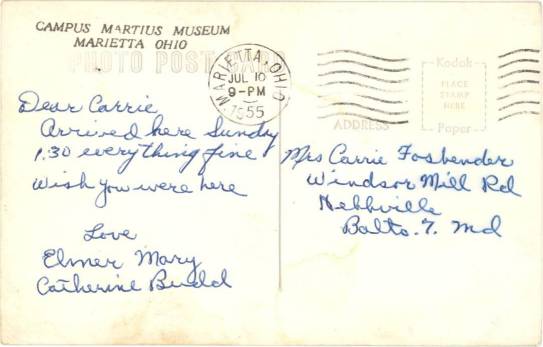 CAMPUS MARTIUS MUSEUM
MARIETTA OHIO
PHOTO POST CARD
MARIETTA, OHIO
JUL 10
9-PM
1955
Kodak
PLACE
STAMP
HERE
Paper
ADDRESS
Dear Carrie
Arrived here Sundy
1:30 everything fine
Wish you were here
Love
Elmer Mary
Catherine Budd
Mrs Carrie Fosbender
Windsor Mill Rd
Hebbville
Balto. 7. Md